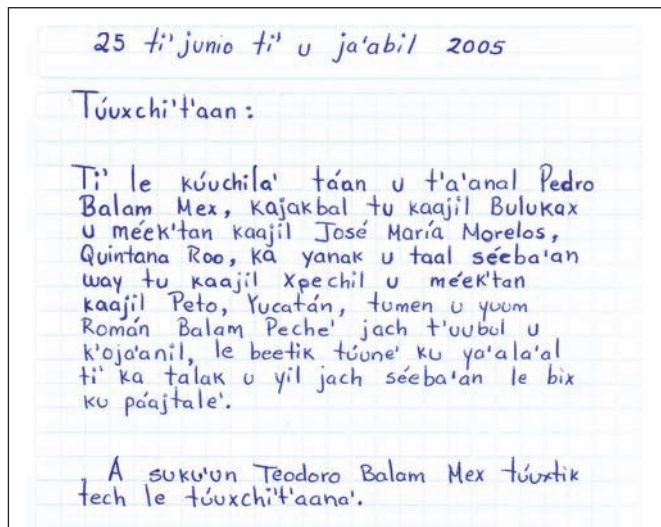 25 ti' junio ti' u ja'abil 2005
Túuxchi't'aan:
Ti' le kúuchila' táan u t'a'anal Pedro
Balam Mex, kajakbal tu kaajil Bulukax
u méek'tan kaajil José María Morelos,
Quintana Roo, ka yanak u taal séeba'an
way tu kaajil Xpechil u méek'tan
kaajil Peto, Yucatán, tumen u yuum
Román Balam Peche' jach t'uubul u
k'oja'anil, le beetik túune' ku ya'ala'al
ti' ka talak u yil jach séeba'an le bix
ku páajtale'.
A suku'un Teodoro Balam Mex túuxtik
tech le túuxchi't'aana'.